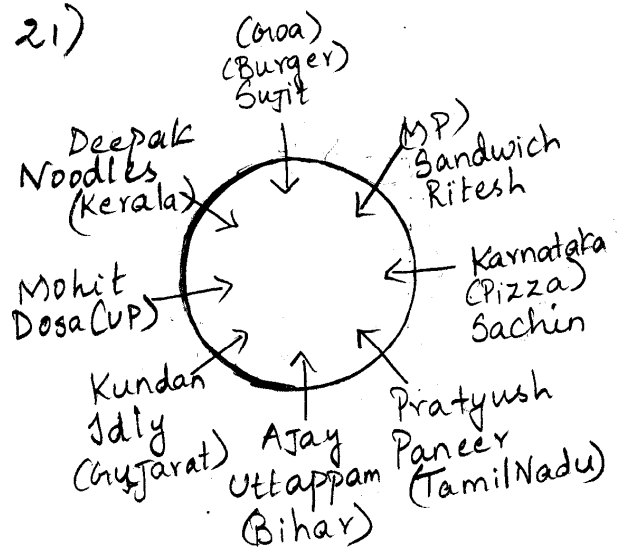 21)
(Goa)
(Burger)
Sujit
(MP)
Sandwich
Ritesh
Karnataka
(Pizza)
Sachin
Pratyush
Paneer
(TamilNadu)
Ajay
Uttappam
(Bihar)
Kundan
Idly
(Gujarat)
Mohit
Dosa(UP)
Deepak
Noodles
(Kerala)